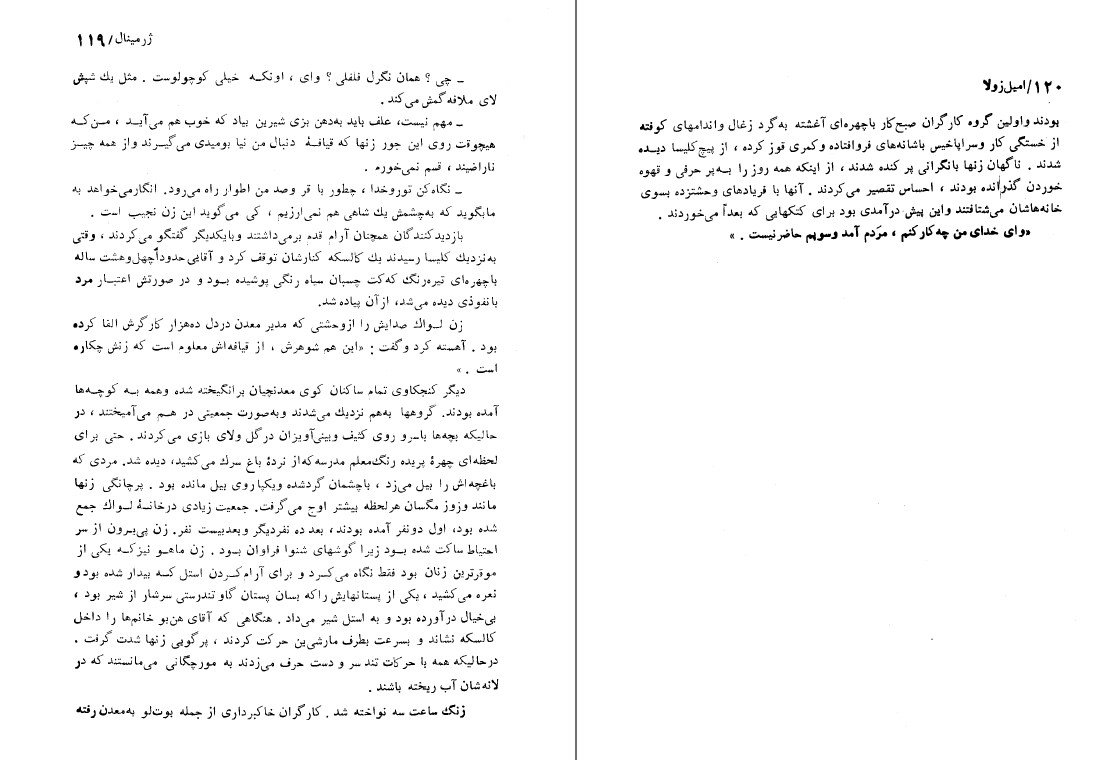 ژرمینال/ ۱۱۹
ـ چی؟ همان نگرل فلفلی؟ وای، اونکه خیلی کوچولوست. مثل یك شپش
لای ملافه گمش می‌کند.
ـ مهم نیست، علف باید به‌دهن بزی شیرین بیاد که خوب هم می‌آید، من‌که
هیچوقت روی این جور زنها که قیافهٔ دنبال من نیا بومیدی می‌گیرند و از همه چیز
ناراضیند، قسم نمی‌خورم.
ـ نگاه‌کن توروخدا، چطور با قر وصد من اطوار راه می‌رود. انگارمی‌خواهد به
مابگوید که به‌چشمش یك شاهی هم نمی‌ارزیم، کی می‌گوید این زن نجیب است.
بازدیدکنندگان همچنان آرام قدم برمی‌داشتند وبایکدیگر گفتگو می‌کردند، وقتی
به‌نزدیك کلیسا رسیدند یك کالسکه کنارشان توقف کرد و آقایی حدوداً چهل‌وهشت ساله
باچهره‌ای تیره‌رنگ که‌کت چسبان سیاه رنگی پوشیده بود و در صورتش اعتبار مرد
بانفوذی دیده می‌شد، ازآن پیاده شد.
زن لواك صدایش را ازوحشتی که مدیر معدن دردل ده‌هزار کارگرش القا کرده
بود. آهسته کرد وگفت: «این هم شوهرش، از قیافه‌اش معلوم است که زنش چکاره
است.»
دیگر کنجکاوی تمام ساکنان کوی معدنچیان برانگیخته شده وهمه به کوچه‌ها
آمده بودند. گروهها به‌هم نزدیك می‌شدند وبه‌صورت جمعیتی در هم می‌آمیختند، در
حالیکه بچه‌ها باسرو روی کثیف وبینی‌آویزان درگل ولای بازی می‌کردند. حتی برای
لحظه‌ای چهرهٔ پریده رنگ‌معلم مدرسه‌که‌از نردهٔ باغ سرك می‌کشید، دیده شد. مردی که
باغچه‌اش را بیل می‌زد، باچشمان گردشده ویکپاروی بیل مانده بود. پرچانگی زنها
مانند وزوز مگسان هرلحظه بیشتر اوج می‌گرفت. جمعیت زیادی درخانهٔ لواك جمع
شده بود، اول دونفر آمده بودند، بعد ده نفردیگر وبعدبیست نفر. زن پی‌یرون از سر
احتیاط ساکت شده بود زیرا گوشهای شنوا فراوان بود. زن ماهو نیزکه یکی از
موقرترین زنان بود فقط نگاه می‌کرد و برای آرام‌کردن استل که بیدار شده بود و
نعره می‌کشید، یکی از پستانهایش راکه بسان پستان گاو تندرستی سرشار از شیر بود،
بی‌خیال درآورده بود و به استل شیر می‌داد. هنگامی که آقای هن‌بو خانم‌ها را داخل
کالسکه نشاند و بسرعت بطرف مارشی‌ین حرکت کردند، پرگویی زنها شدت گرفت.
درحالیکه همه با حرکات تند سر و دست حرف می‌زدند به مورچگانی می‌مانستند که در
لانه‌شان آب ریخته باشند.
زنگ ساعت سه نواخته شد. کارگران خاکبرداری از جمله بوت‌لو به‌معدن رفته
۱۲۰/ امیل‌زولا
بودند واولین گروه کارگران صبح‌کار باچهره‌ای آغشته به‌گرد زغال واندامهای کوفته
از خستگی کار وسراپاخیس باشانه‌های فروافتاده وکمری قوز کرده، از پیچ‌کلیسا دیده
شدند. ناگهان زنها بانگرانی پر کنده شدند، از اینکه همه روز را به‌پر حرفی و قهوه
خوردن گذرانده بودند، احساس تقصیر می‌کردند. آنها با فریادهای وحشتزده بسوی
خانه‌هاشان می‌شتافتند واین پیش درآمدی بود برای کتکهایی که بعداً می‌خوردند.
«وای خدای من چه‌کارکنم، مَردم آمد وسوپم حاضرنیست.»